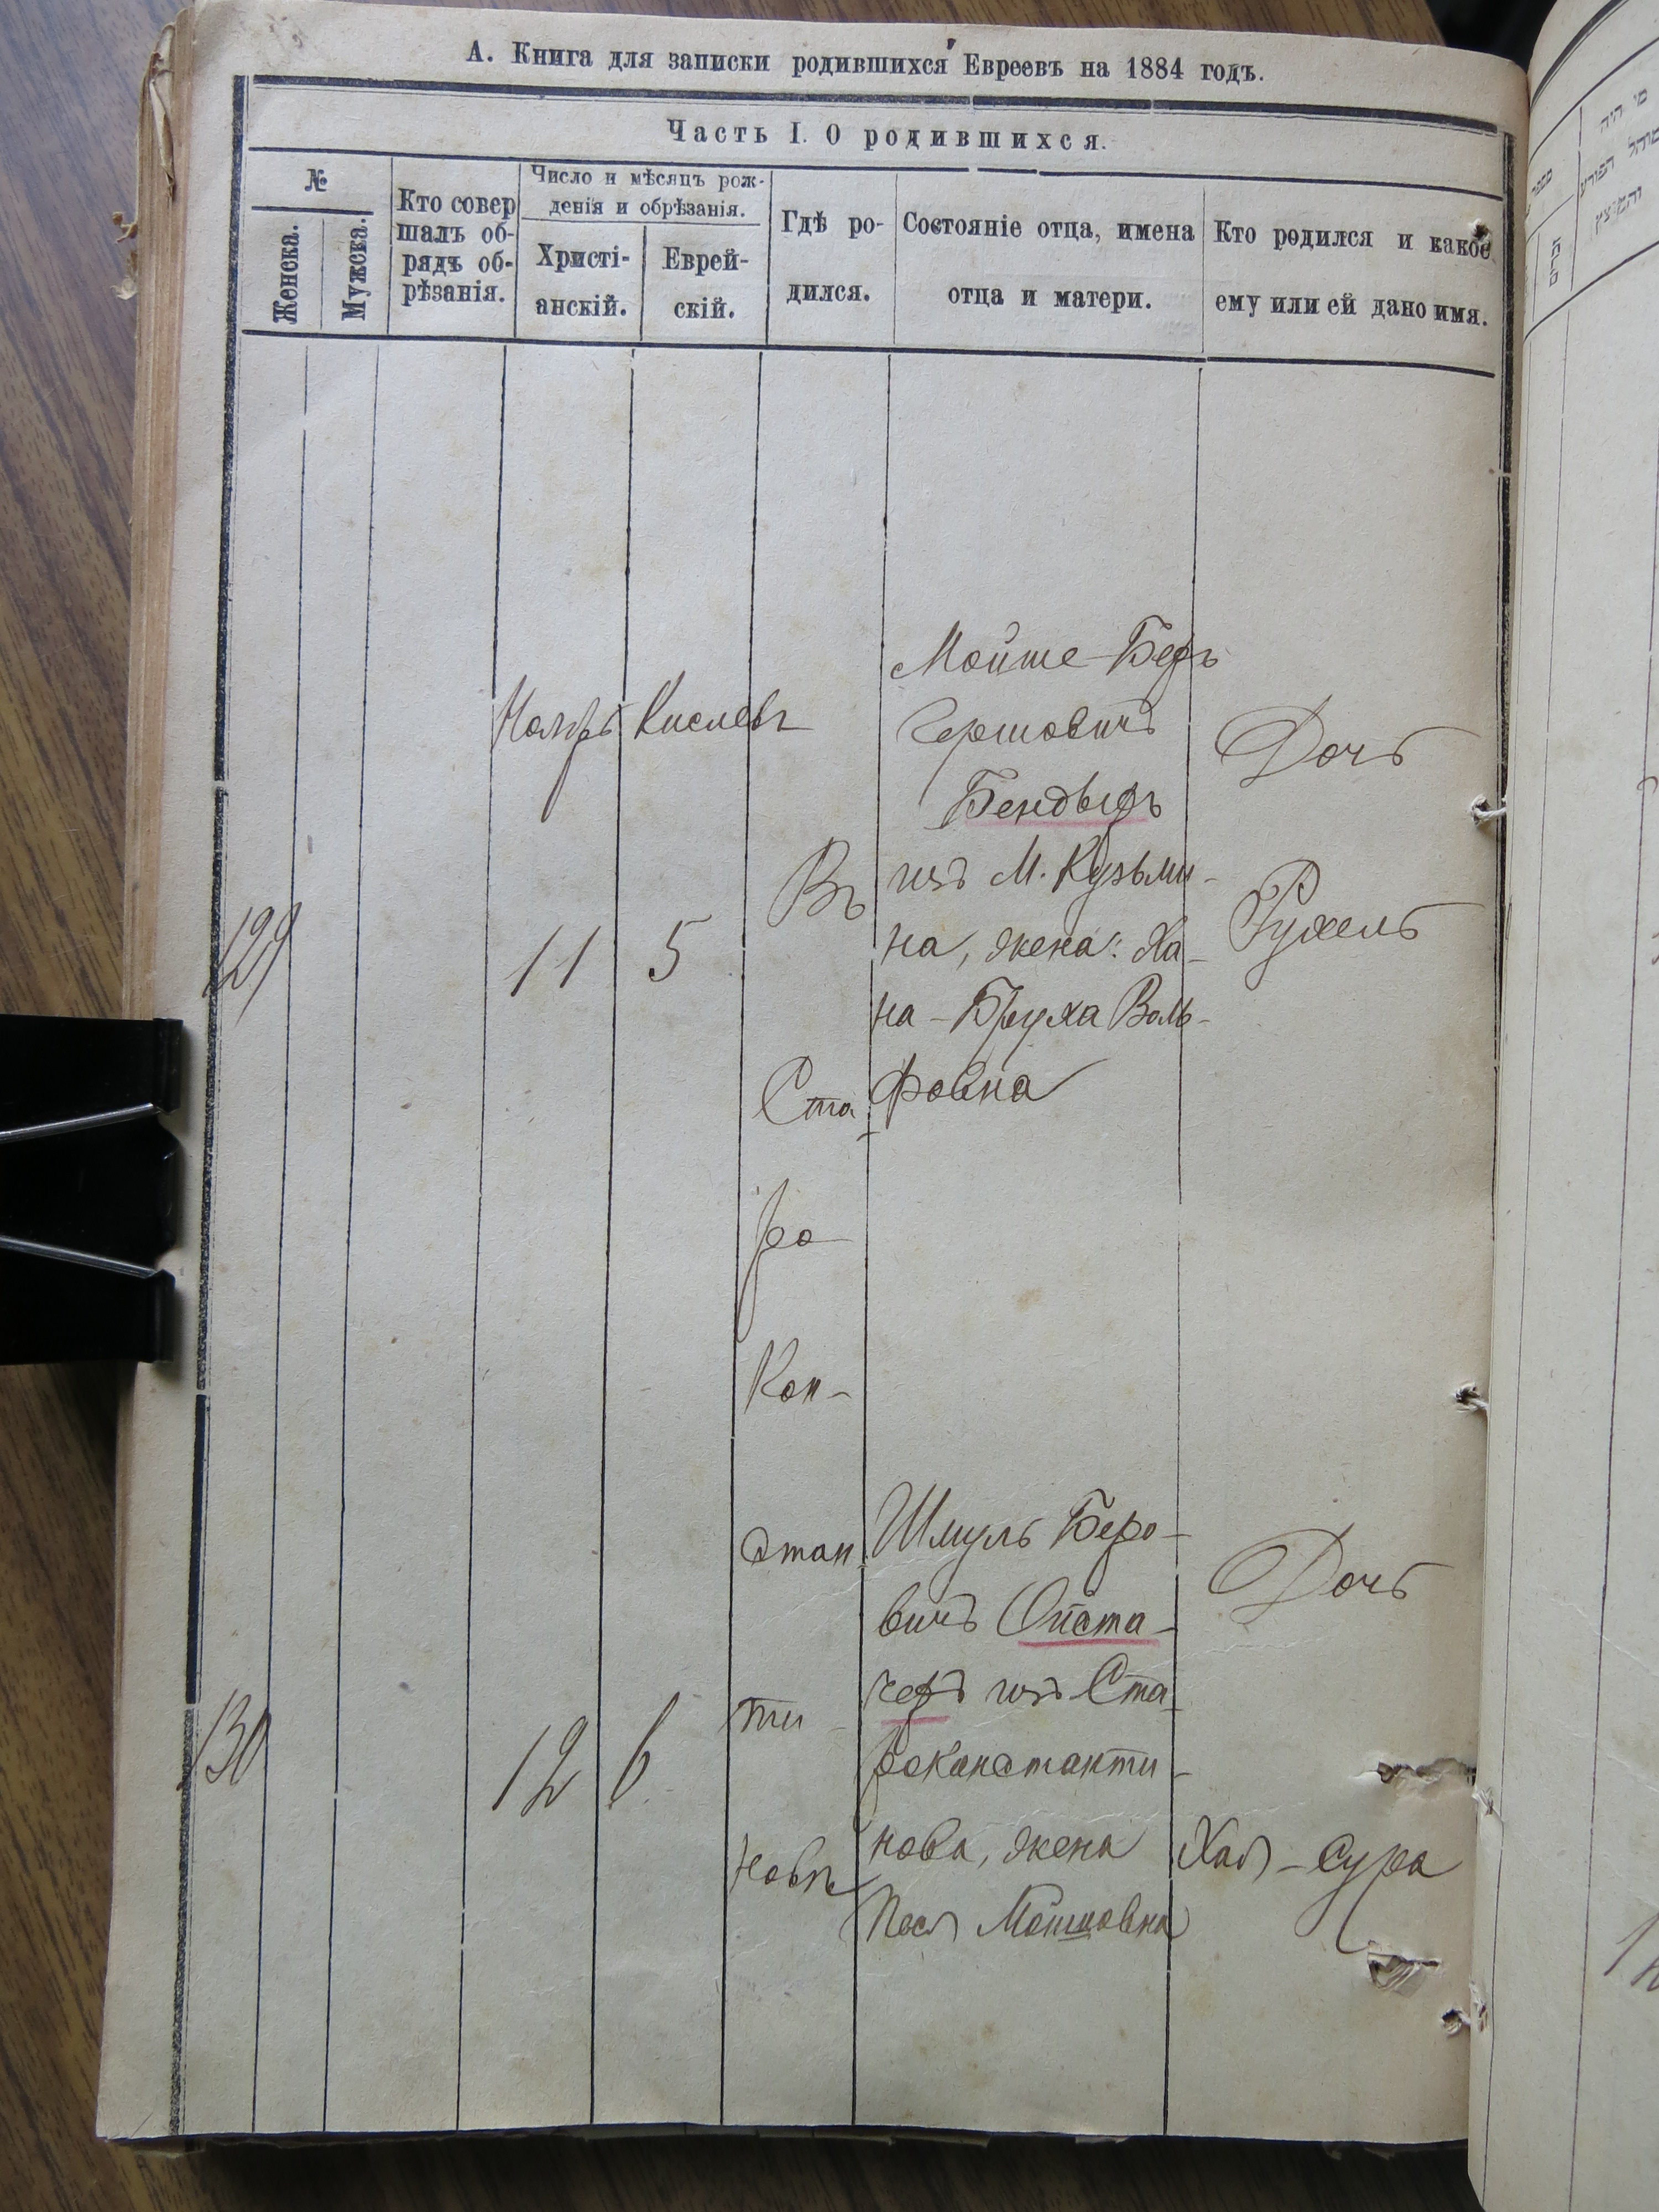 А. Книга для записки родившихся Евреевъ на 1884 годъ.
Часть I. О родившихся.
№
Женска.
Мужска.
Кто совер
шалъ об-
рядъ об-
рѣзанія.
Число и мѣсяцъ рож-
денія и обрѣзанія.
Христі-
анскій.
Еврей-
скій.
Гдѣ ро-
дился.
Состояніе отца, имена
отца и матери.
Кто родился и какое
ему или ей дано имя.
129
Ноябрь
11
Кислевъ
5
Въ
Ста-
ро
Кон-
стан
ти-
новѣ
Мойше-Беръ
Гершовичъ
Бендыръ
изъ М. Кузьми-
на, жена: Ха-
на-Бруха Воль-
фовна
Дочь
Рухель
130
12
6
Шмуль Беро-
вичъ Ойста-
черъ изъ Ста-
роконстанти-
нова, жена
Пося Мошковна
Дочь
Хая-Сура
מי היה
מוהל הפורע
והמוצץ
מספר
זכרים